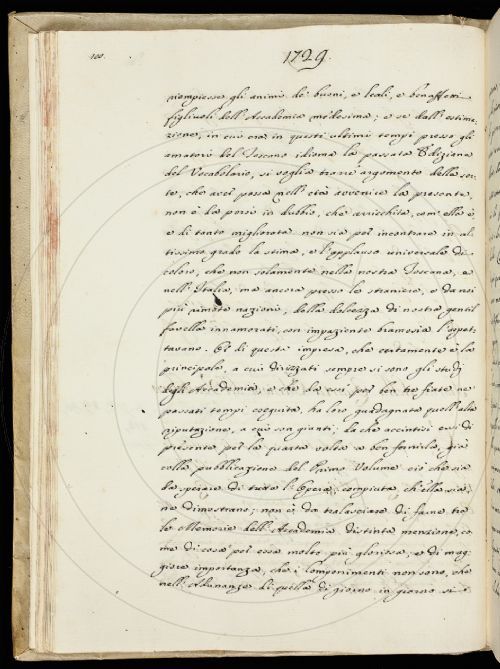 100.
1729.
riempiesse gli animi de' buoni, e leali, e benaffetti
figliuoli dell'Accademia medesima; e se dall'estima-
zione, in cui era in questi ultimi tempi presso gli
amatori del Toscano idioma la passata Edizione
del Vocabolario, si voglia trarre argomento della sor-
te, che aver possa nell'età avvenire la presente,
non è da porsi in dubbio, che arricchita, com'ella è,
e di tanto migliorata non sia per incontrare in al-
tissimo grado la stima, e l'applauso universale di
coloro, che non solamente nella nostra Toscana, e
nell'Italia, ma ancora presso le straniere, e da noi
più rimote nazioni, della dolcezza di nostra gentil
favella innamorati, con impaziente bramosia l'aspet-
tavano. Or di questa impresa, che certamente è la
principale, a cui dirizzati sempre si sono gli studj
degli Accademici, e che da essi per ben tre fiate ne'
passati tempi eseguita, ha loro guadagnata quell'alta
riputazione, a cui son giunti; la che accintisi essi di
presente per la quarta volta a ben fornirla, già
colla pubblicazione del Primo Volume ciò che sia
da sperare di tutta l'Opera, compiuta ch'ella sia,
ne dimostrano; non è da tralasciare di farne tra
le Memorie dell'Accademia distinta menzione, co-
me di cosa per essa molto più gloriosa, e di mag-
giore importanza, che i Componimenti non sono, che
nell'Adunanze di quella di giorno in giorno si